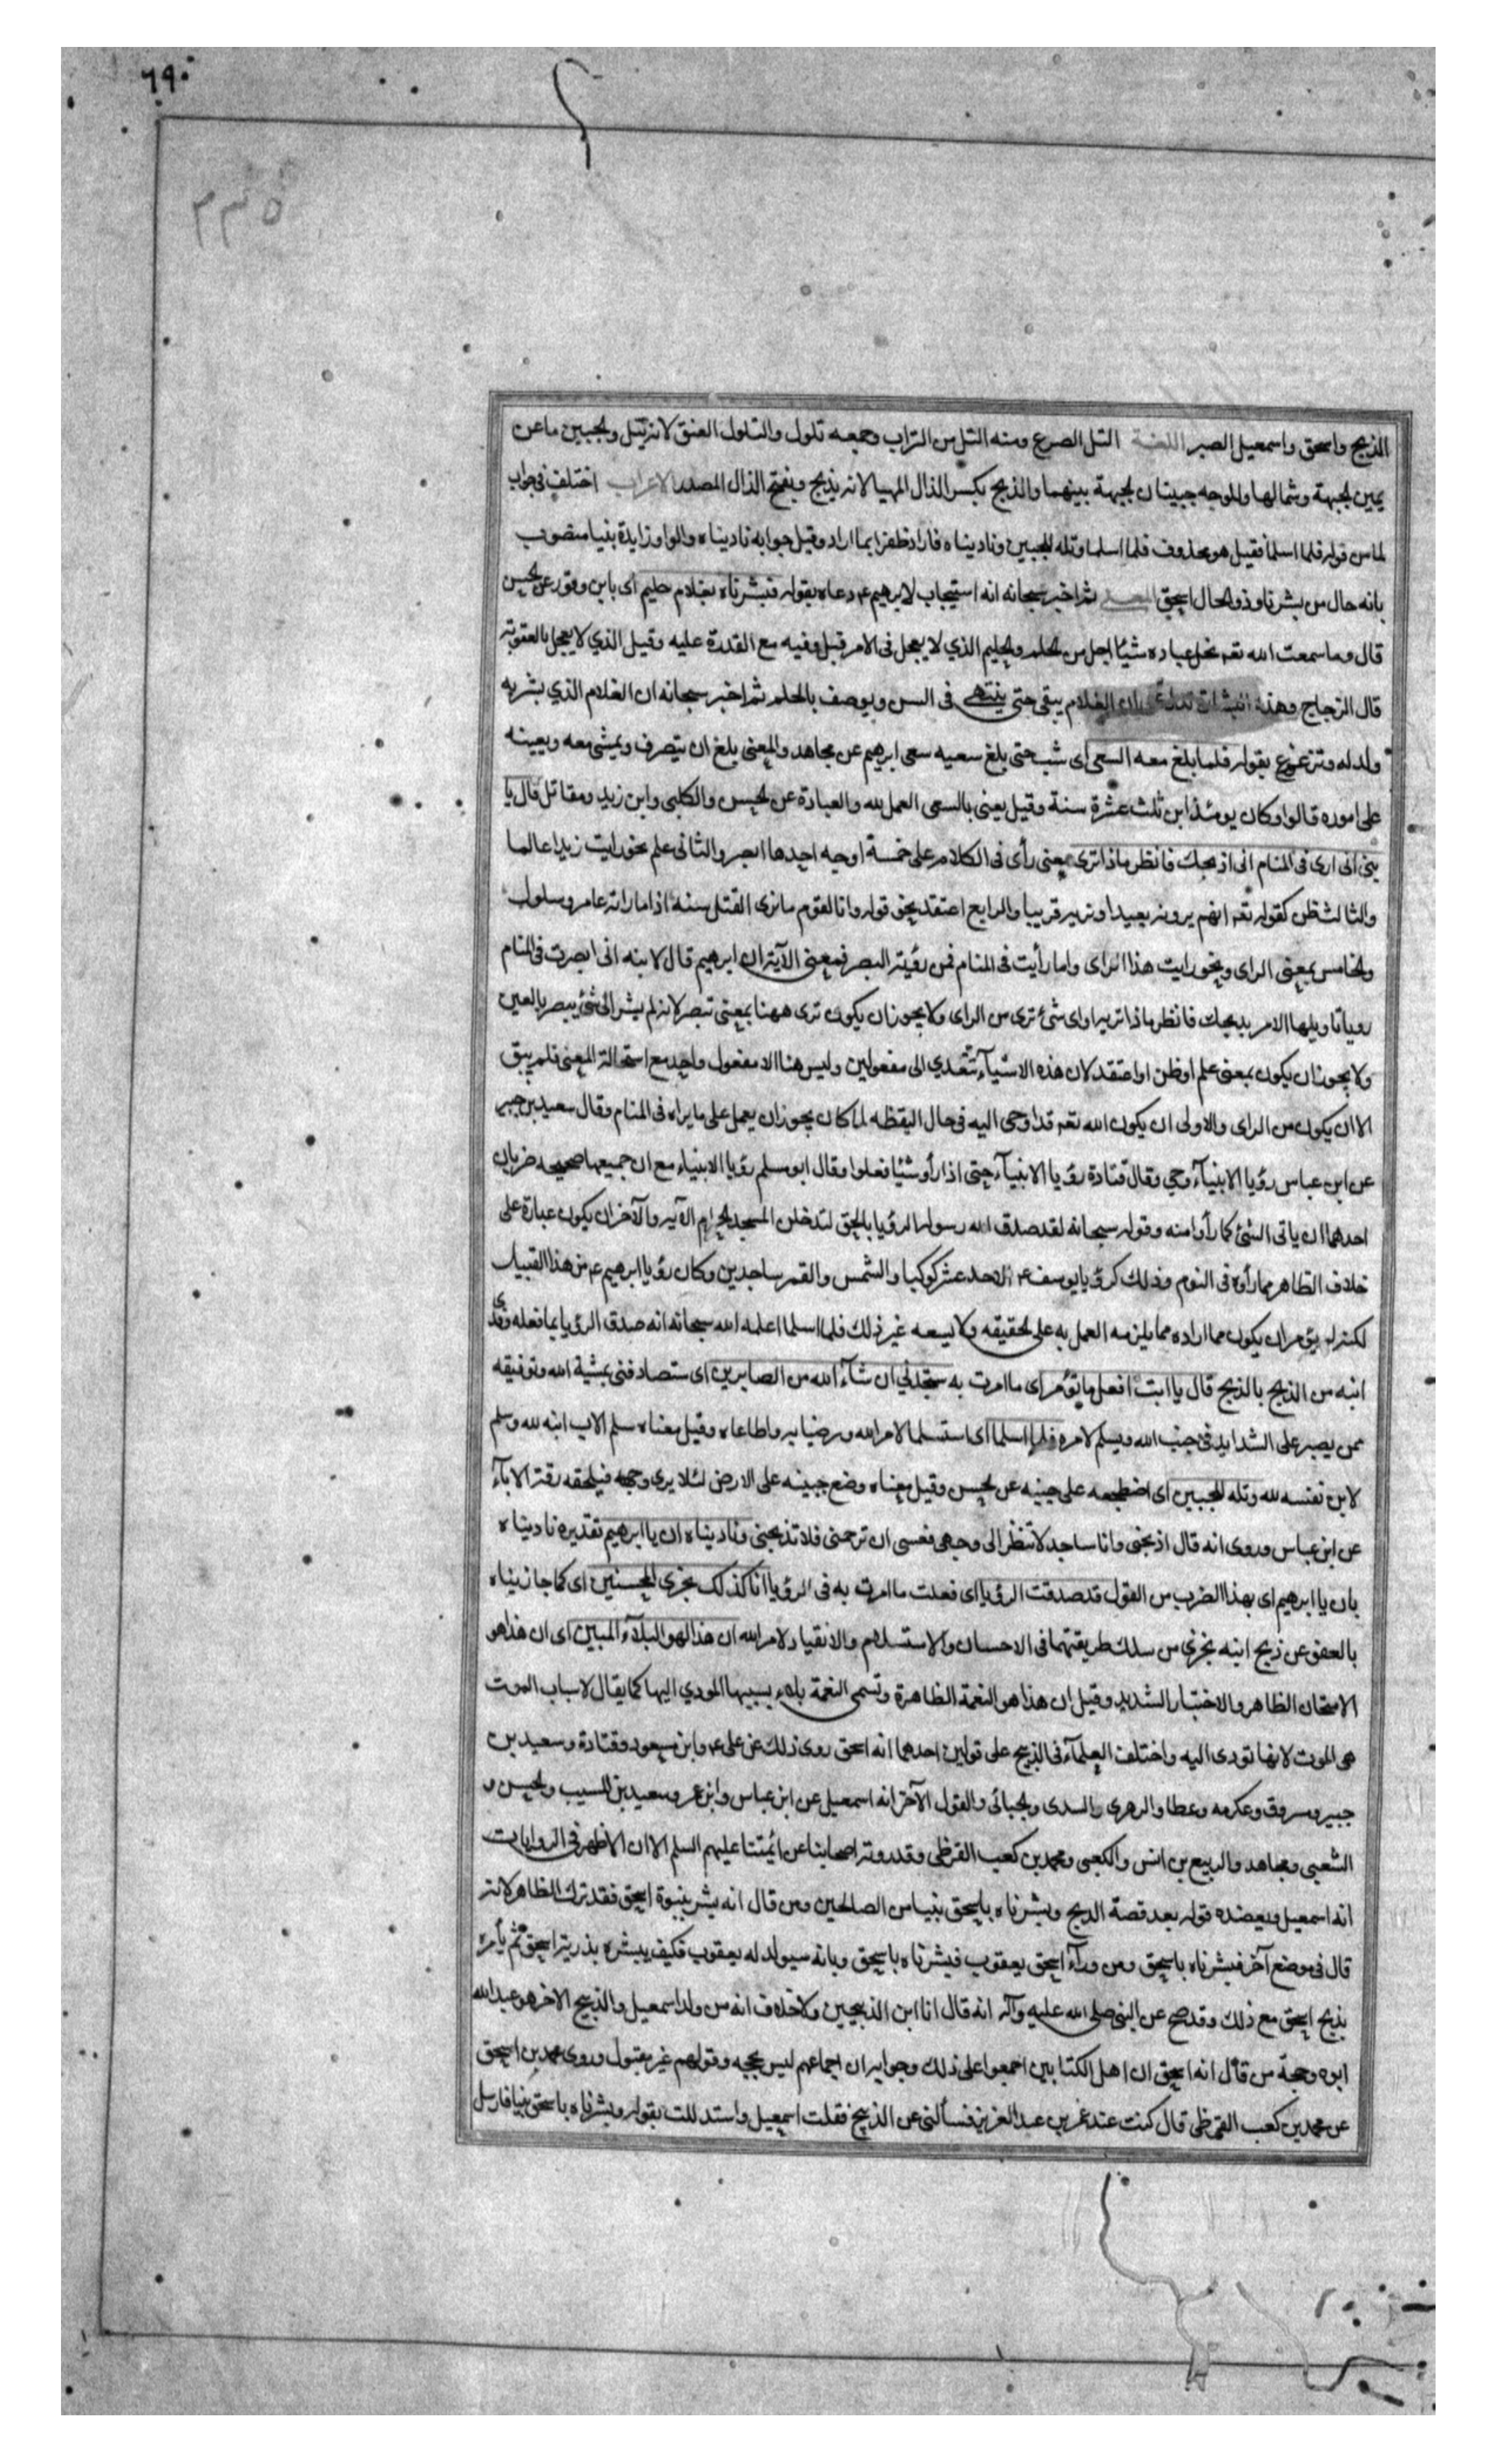 ٦٩٠
٥٣٣
الذبيح واسحق واسمعيل الصبر اللغة التل الصرع ومنه التل من التراب وجمعه تلول والتلول العنق لانه يتل والجبين ماعن
يمين الجبهة وشمالها وللوجه جبينان الجبهة بينهما والذبح بكسر الذال المهيا لانه يذبح وبفتح الذال المصدر الاعراب اختلف فى جواب
لما من قوله فلما اسلما فقيل هو محذوف فلما اسلما وتله للجبين وناديناه فاز اوظفرا بما اراد وقيل جوابه ناديناه والواو زايدة بنيا منصوب
بانه حال من بشرناه وذو الحال اسحق المعنى ثم اخبر سبحانه انه استجاب لابرهيم ع دعاه بقوله فبشرناه بغلام حليم اى بابن وقور عن الحسن
قال وما سمعت الله تعه نحل عباده شيئا اجل من الحلم والحليم الذي لا يعجل فى الامر قبل وقته مع القدرة عليه وقيل الذي لا يعجل بالعقوبة
قال الزجاج وهذه البشارة تدل على ان الغلام يبقى حتى ينتهى فى السن ويوصف بالحلم ثم اخبر سبحانه ان الغلام الذي بشر به
ولد له وترعرع بقوله فلما بلغ معه السعى اى شب حتى بلغ سعيه سعى ابرهيم عن مجاهد والمعنى بلغ ان يتصرف ويمشى معه ويعينه
على اموره قالوا وكان يومئذ ابن ثلث عشرة سنة وقيل يعنى بالسعى العمل لله والعبادة عن الحسن والكلبى وابن زيد ومقاتل قال يا
بنى انى ارى فى المنام انى اذبحك فانظر ماذا ترى معنى رأى فى الكلام على خمسة اوجه احدها ابصر والثانى علم نحو رايت زيدا عالما
والثالث ظن كقوله تعه انهم يرونه بعيدا ونريه قريبا والرابع اعتقد نحو قوله وانا لقوم ما نرى القتل سنه اذا ما راته عامر وسلول
والخامس بمعنى الراى ونحو رايت هذا الراى واما رأيت فى المنام فمن رؤية البصر فمعنى الآية ان ابرهيم قال لابنه انى ابصرت فى المنام
رويا تاويلها الامر بذبحك فانظر ماذا تريه او اى شئ ترى من الراى ولا يجوز ان يكون ترى ههنا بمعنى تبصر لانه لم يشر الى شئ يبصر بالعين
ولا يجوز ان يكون بمعنى علم او ظن او اعتقد لان هذه الاشيآء تتعدي الى مفعولين وليس هنا الا مفعول واحد مع استحالة المعنى فلم يبق
الا ان يكون من الراى والاولى ان يكون الله تعه قد اوحى اليه فى حال اليقظه لما كان يجوز ان يعمل على ما يراه فى المنام وقال سعيد بن جبير
عن ابن عباس رؤيا الانبيآء وحي وقال قتادة رؤيا الانبيآء حتى اذا رأوا شيئا فعلوا وقال ابو مسلم رؤيا الانبياء مع ان جميعها صحيحه ضربان
احدهما ان ياتى الشئ كما رأوا منه وقوله سبحانه لقد صدق الله رسوله الرؤيا بالحق لتدخلن المسجد الحرام الآيه والآخر ان يكون عبارة على
خلاف الظاهر مما رأوه فى النوم وذلك كرؤيا يوسف ع الاحد عشر كوكبا والشمس والقمر ساجدين وكان رؤيا ابرهيم ع من هذا القبيل
لكنه لم يؤمر ان يكون مما اراده مما يلزمه العمل به على الحقيقه ولا يسعه غير ذلك فلما اسلما اعلمه الله سبحانه انه صدق الرؤيا بما فعله وفدى
ابنه من الذبح بالذبح قال يا ابت افعل ما تؤمر اى ما امرت به ستجدني ان شآء الله من الصابرين اى ستصادفنى بمشية الله وتوفيقه
ممن يصبر على الشدايد فى جنب الله ويسلم لامره فلما اسلما اى استسلما لامر الله ورضيا به واطاعاه وقيل معناه سلم الاب ابنه لله وسلم
لابن نفسه لله وتله للجبين اى اضطجعه على جبينه عن الحسن وقيل معناه وضع جبينه على الارض لئلا يرى وجهه فيلحقه رقة الابآء
عن ابن عباس وروى انه قال اذبحنى وانا ساجد لا تنظر الى وجهى فعسى ان ترحمنى فلا تذبحنى وناديناه ان يا ابرهيم تقديره ناديناه
بان يا ابرهيم اى بهذا الضرب من القول قد صدقت الرؤيا اى فعلت ما امرت به فى الرؤيا انا كذلك نجزى المحسنين اى كما جازيناه
بالعفو عن ذبح ابنه نجزى من سلك طريقتهما فى الاحسان والاستسلام والانقياد لامر الله ان هذا لهو البلآء المبين اى ان هذا هو
الامتحان الظاهر والاختبار الشديد وقيل ان هذا هو النعمة الظاهرة وتسمى النعمة بلاء بسببها المودي اليها كما يقال لاسباب الموت
هى الموت لانها تودى اليه واختلف العلمآء فى الذبيح على قولين احدهما انه اسحق روى ذلك عن على ع وابن مسعود وقتادة وسعيد بن
جبير ومسروق وعكرمه وعطا والزهرى والسدى والجبائى والقول الآخر انه اسمعيل عن ابن عباس وابن عمر وسعيد بن المسيب والحسن و
الشعبى ومجاهد والربيع بن انس والكعبى ومحمد بن كعب القرظى وقد روته اصحابنا عن ائمتنا عليهم السلم الا ان الاظهر فى الروايات
انه اسمعيل ويعضده قوله بعد قصة الذبح وبشرناه باسحق نبيا من الصالحين ومن قال انه بشر بنبوة اسحق فقد ترك الظاهر لانه
قال فى موضع آخر فبشرناه باسحق ومن ورآء اسحق يعقوب فبشرناه باسحق وبانه سيولد له يعقوب فكيف يبشره بذرية اسحق ثم يأمره
بذبح اسحق مع ذلك وقد صح عن النبى صلى الله عليه وآله انه قال انا ابن الذبيحين ولا خلاف انه من ولد اسمعيل والذبيح الاخر هو عبد الله
ابوه وحجة من قال انه اسحق ان اهل الكتابين اجمعوا على ذلك وجوابه ان اجماعهم ليس بحجه وقولهم غير مقبول وروى محمد بن اسحق
عن محمد بن كعب القرظى قال كنت عند عمر بن عبد العزيز فسألنى عن الذبيح فقلت اسمعيل واستدللت بقوله وبشرناه باسحق نبيا فارسل